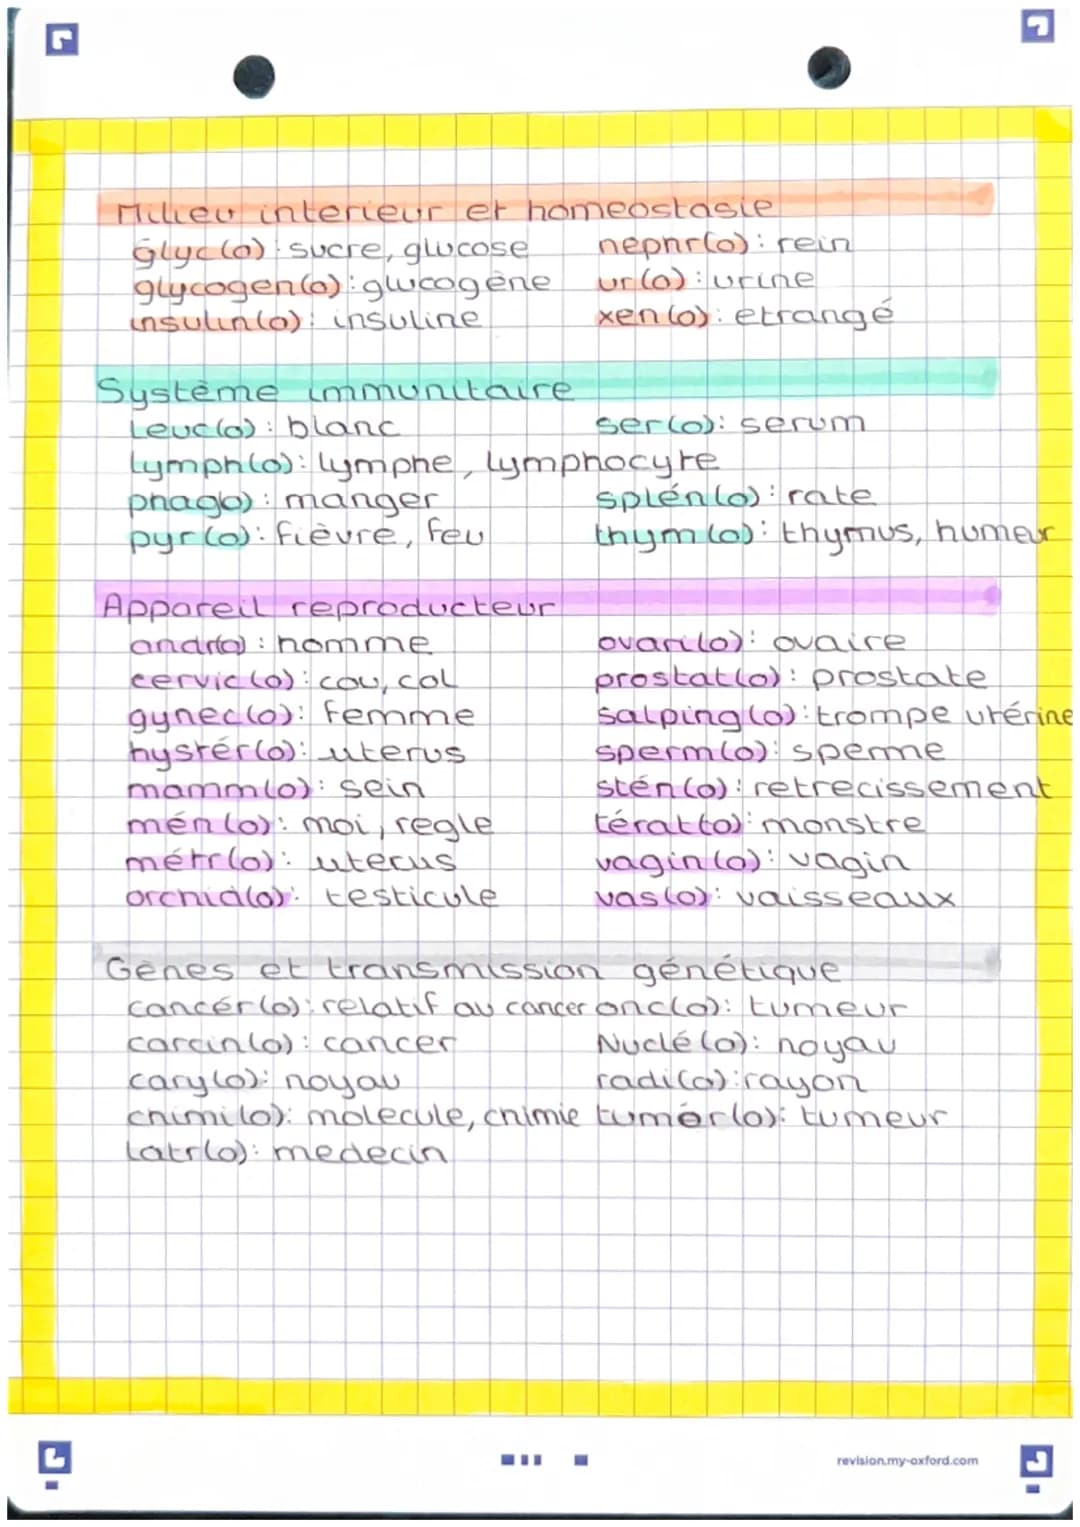 Milieu interieur et homeostasie
Glyc(o) : sucre, glucose nephr(o) : rein
glycogen(o) : glucogène ur(o) : urine
insulin(o) : insuline xen(o) : etrangé
Système immunitaire
Leuc(o) : blanc ser(o) : serum
Lymph(o) : lymphe, lymphocyte
phag(o) : manger splén(o) : rate
pyr(o) : fièvre, feu thym(o) : thymus, humeur
Appareil reproducteur
andr(o) : homme ovari(o) : ovaire
cervic(o) : cou, col prostat(o) : prostate
gynec(o) : femme salping(o) : trompe utérine
hystér(o) : uterus sperm(o) : sperme
mamm(o) : sein stén(o) : retrecissement
mén(o) : moi, regle térat(o) : monstre
métr(o) : uterus vagin(o) : vagin
orchid(o) : testicule vas(o) : vaisseaux
Gènes et transmission génétique
cancér(o) : relatif au cancer onc(o) : tumeur
carcin(o) : cancer Nuclé(o) : noyau
cary(o) : noyau radi(o) : rayon
chimi(o) : molecule, chimie tumér(o) : tumeur
Iatr(o) : medecin
revision.my-oxford.com